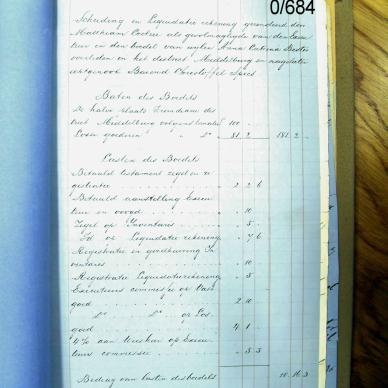 0/684
Scheiding en Liquidatie rekening
Matthiam als gevolmagtigde van den
teur en den boedel van wylen Anna Catrina Bester
overleden in het district Middelburg en nagelaten
echtgenoot Barend Christoffel Spies
Baten des Boedels
De halve plaats dis
trict Middelburg volgens 100 -
Losse goederen " Do 81. 2 - 181. 2 -
Lasten des Boedels
Betaald testament zegel en re
gistratie 2 2 6
Betaald aanstelling Execu
teur en voogd - 10
Zegel op Inventaris - 5 -
Id op Liquidatie rekening - 7 6
Registratie en goedkeuring In
ventaris - 10
Registratie Liquidatierekening - 5
Executeurs commissie op Vast
goed 2 10
Do Do op Los
goed 4 1
4% aan Weeskamer op Execu
teurs commissie - 5 3
Bedrag van lasten des boedels 10 16 3